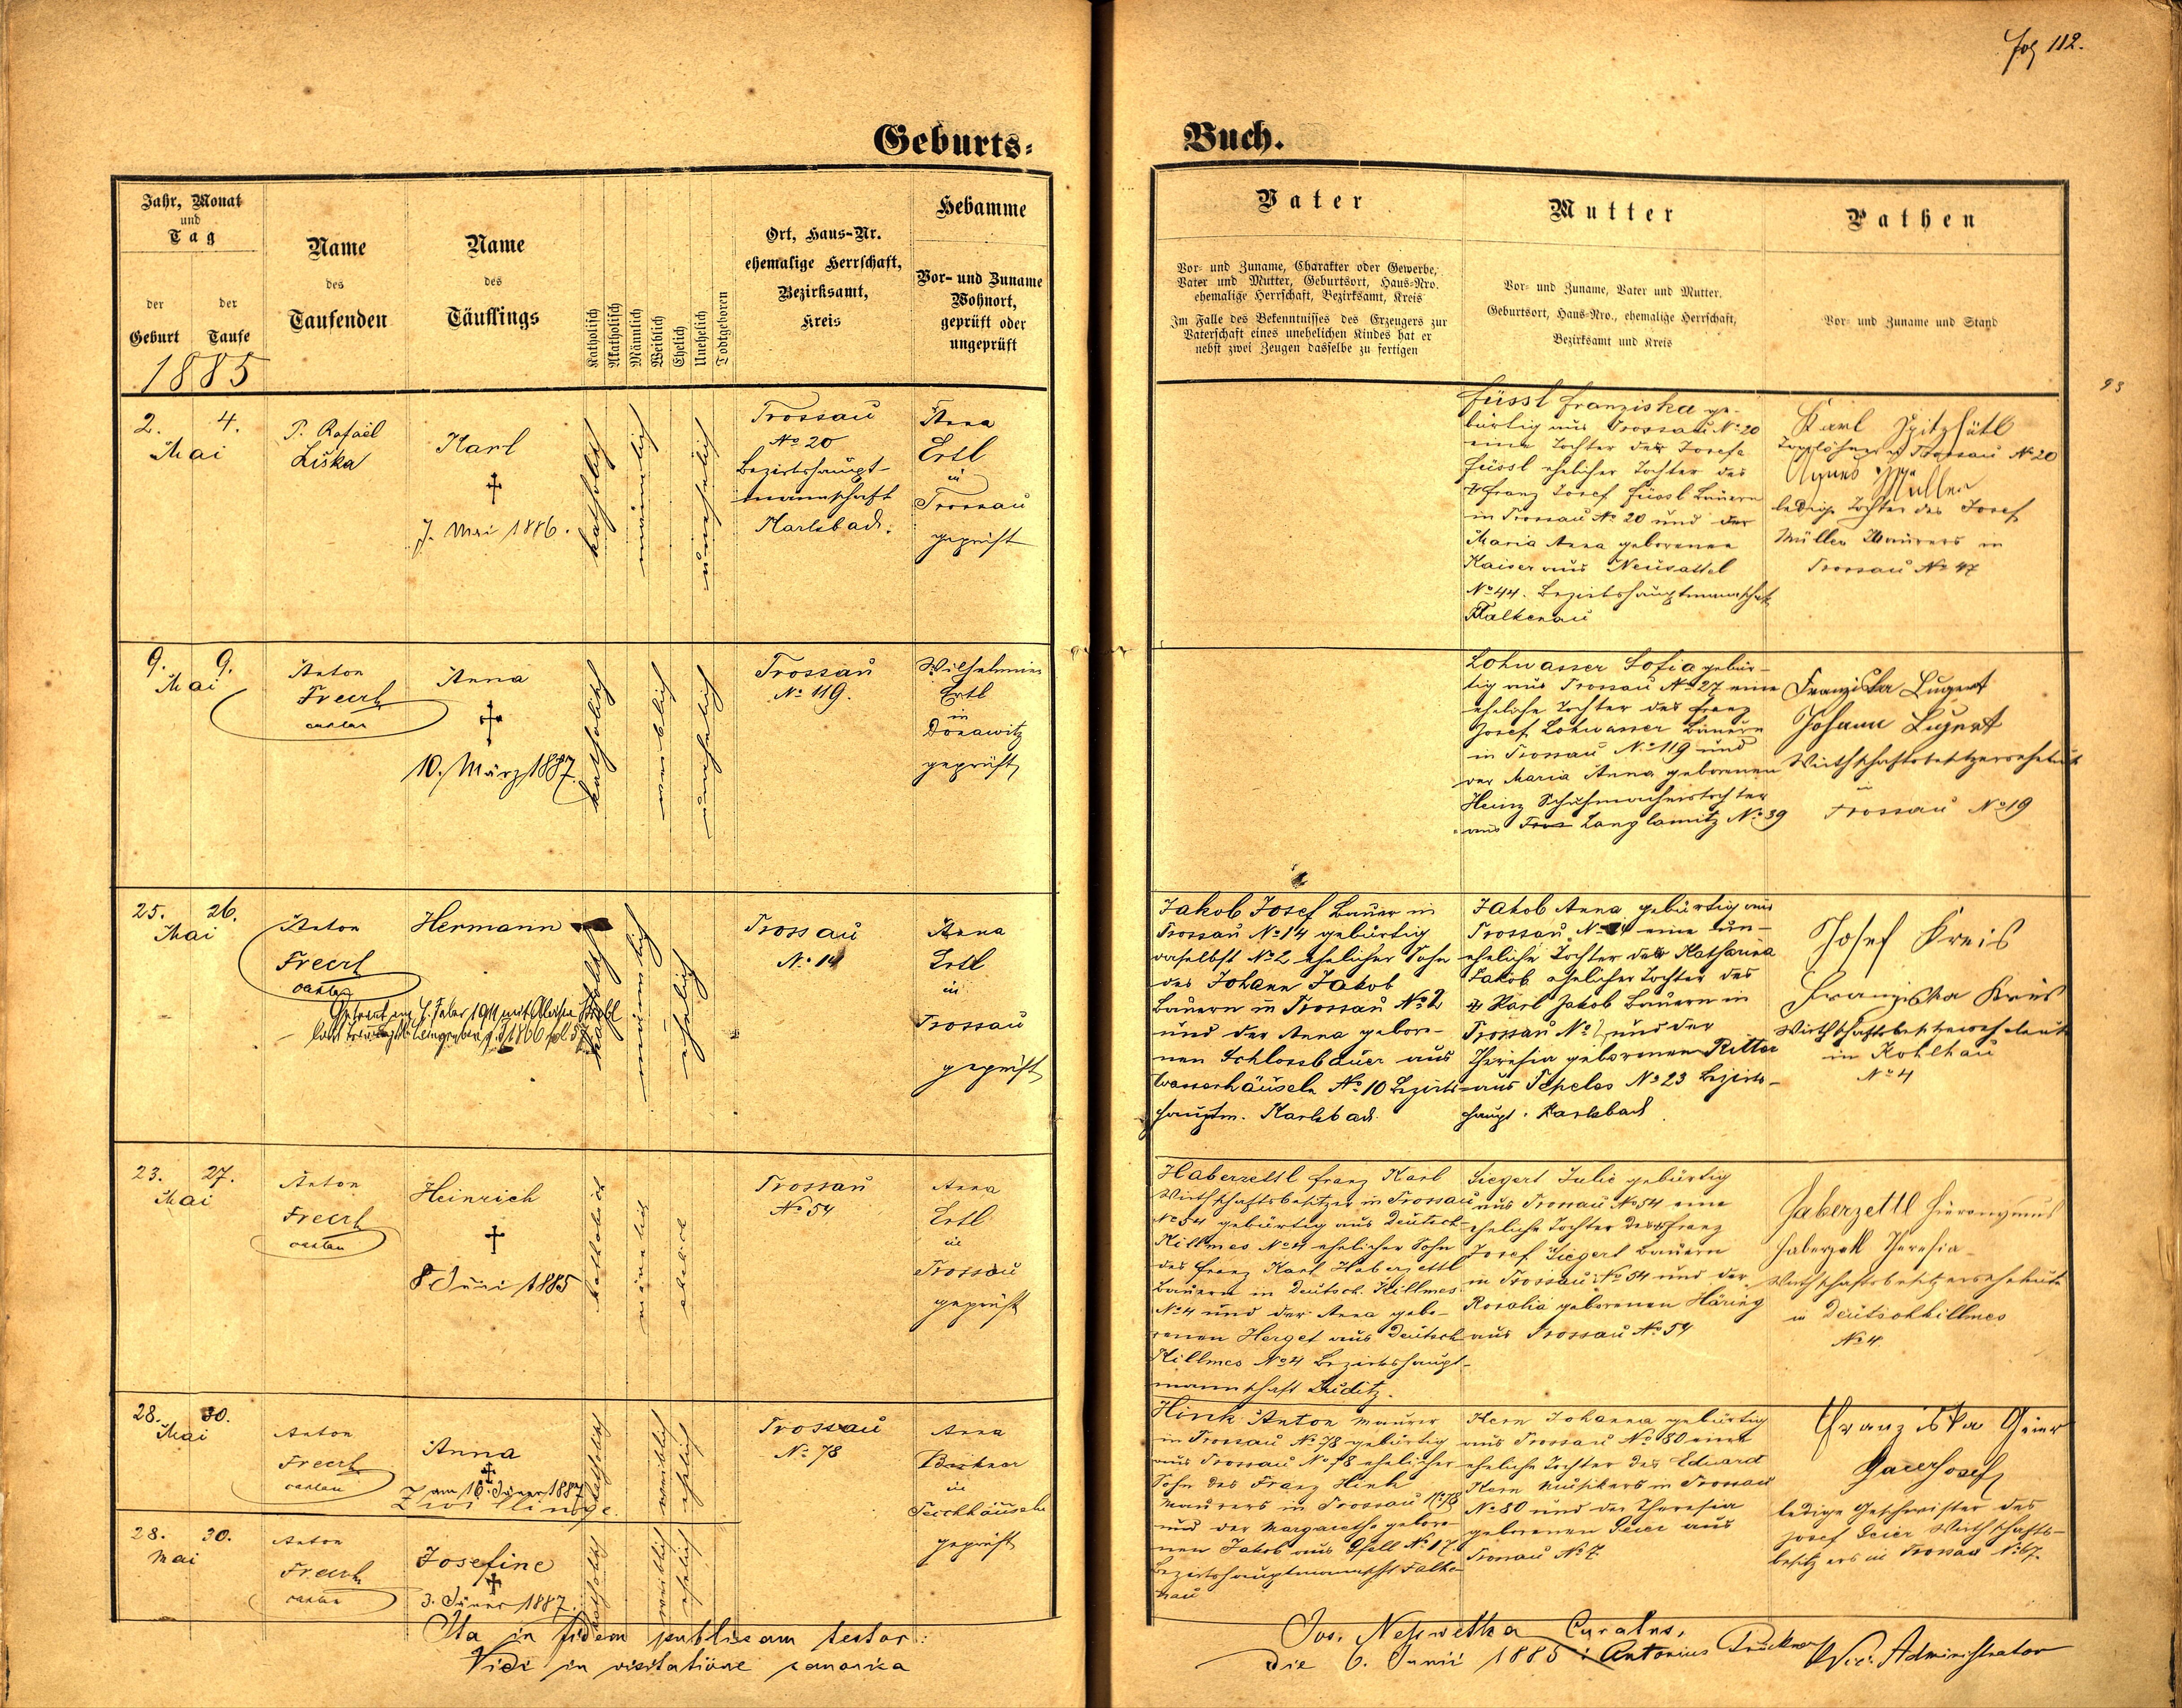 Fol 112.
Geburts-
Buch.
Jahr, Monat
und
Tag
der
Geburt
der
Taufe
1885
Name
des
Taufenden
Name
des
Täuflings
Katholisch
Akatholisch
Männlich
Weiblich
Ehelich
Unehelich
Todtgeboren
Ort, Haus-Nr.
ehemalige Herrschaft,
Bezirksamt,
Kreis
Hebamme
Vor- und Zuname
Wohnort,
geprüft oder
ungeprüft
Vater
Vor- und Zuname, Charakter oder Gewerbe,
Vater und Mutter, Geburtsort, Haus-Nro.
ehemalige Herrschaft, Bezirksamt, Kreis
Im Falle des Bekenntnisses des Erzeugers zur
Vaterschaft eines unehelichen Kindes hat er
nebst zwei Zeugen dasselbe zu fertigen
Mutter
Vor- und Zuname, Vater und Mutter,
Geburtsort, Haus-Nro., ehemalige Herrschaft,
Bezirksamt und Kreis
Pathen
Vor- und Zuname und Stand
2. 4.
Mai
P. Rafael
Liška
Karl
†
7. Mai 1886.
katholisch
männlich
unehelich
Trossau
No 20
Bezirkshaupt-
mannschaft
Karlsbad.
Anna
Ertl
in
Trossau
geprüft
Füssl Franziska ge-
bürtig aus Trossau No 20
eine Tochter der Josefa
Füssl ehelicher Tochter des
Franz Josef Füssl Bauern
in Trossau No 20 und der
Maria Anna geborenen
Kaiser aus Neusattel
No 44. Bezirkshauptmannschaft
Falkenau
Karl Spitzhütl
Taglöhner in Trossau No 20
Agnes Müller
ledige Tochter des Josef
Müller Maurers in
Trossau No 47
9. 9.
Mai
Anton
Freerl
Anna
†
10. März 1887.
katholisch
weiblich
unehelich
Trossau
No 119.
Wilhelmine
Ertl
in
Donawitz
geprüft
Lohwasser Sofia gebür-
tig aus Trossau No 27 eine
eheliche Tochter des Franz
Josef Lohwasser Bauern
in Trossau No 119 und
der Maria Anna geborenen
Heinz Schuhmacherstochter
aus Langlamitz No 39
Franziska Lugert
Johann Lugert
Wirthschaftsbesitzerseheleute
in
Trossau No 19
25. 26.
Mai
Anton
Freerl
Hermann
katholisch
männlich
ehelich
Trossau
No 14
Anna
Ertl
in
Trossau
geprüft
Jakob Josef Bauer in
Trossau No 14 gebürtig
daselbst No 2 ehelicher Sohn
des Johann Jakob
Bauern in Trossau No 2
und der Anna gebore-
nen Schlossbauer aus
Wasserhäuseln No 10 Bezirks-
hauptm. Karlsbad.
Jakob Anna gebürtig aus
Trossau eine un-
eheliche Tochter der Katharina
Jakob ehelicher Tochter des
Karl Jakob Bauern in
Trossau und der
Theresia geborenen Ritter
aus Tepeles No 23 Bezirks-
haupt. Karlsbad
Josef Kreis
Franziska Kreis
Wirthschaftsbesitzerseheleute
in Kohlhau
No 4
23. 27.
Mai
Anton
Freerl
Heinrich
†
8 Juni 1885
katholisch
männlich
ehelich
Trossau
No 54
Anna
Ertl
in
Trossau
geprüft
Haberzettl Franz Karl
Wirthschaftsbesitzer in Trossau
No 54 gebürtig aus Deutsch-
Killmes No 4 ehelicher Sohn
des Franz Karl Haberzettl
Bauern in Deutsch. Killmes
No 4 und der Anna gebo-
renen Herget aus Deutsch
Killmes No 4 Bezirkshaupt-
mannschaft Luditz.
Siegert Julie gebürtig
aus Trossau No 54 eine
eheliche Tochter des Franz
Josef Siegert Bauern
in Trossau No 54 und der
Rosalia geborenen Häring
aus Trossau No 54
Haberzettl Hieronymus
Haberzettl Theresia
Wirthschaftsbesitzerseheleute
in Deutschkillmes
No 4.
28. 30.
Mai
Anton
Freerl
Anna
†
am 16. Jäner 1887
Zwillinge.
katholisch
weiblich
ehelich
Trossau
No 78
Anna
in
Teichhäuseln
geprüft
Hink Anton Maurer
in Trossau No 78 gebürtig
aus Trossau No 78 ehelicher
Sohn des Franz Hink
Maurers in Trossau No 78
und der Margaretha gebore-
nen Jakob aus Gfell No 17.
Bezirkshauptmannschft Falke-
nau
Kern Johanna gebürtig
aus Trossau No 80 eine
eheliche Tochter des Eduard
Kern Musikers in Trossau
No 80 und der Theresia
geborenen Geier aus
Trossau No 7.
Franziska Geier
Gaier Josef
ledige Geschwister des
Josef Geier Wirthschafts-
besitzers in Trossau No 67.
28. 30.
Mai
Anton
Freerl
Josefine
†
3. Jäner 1887.
katholisch
weiblich
ehelich
Ita in fidem publicam testor:
Jos. Neswetha Curatus.
Vidi in visitatione canonica
die 6. Junii 1885: Antonius Vic. Administrator